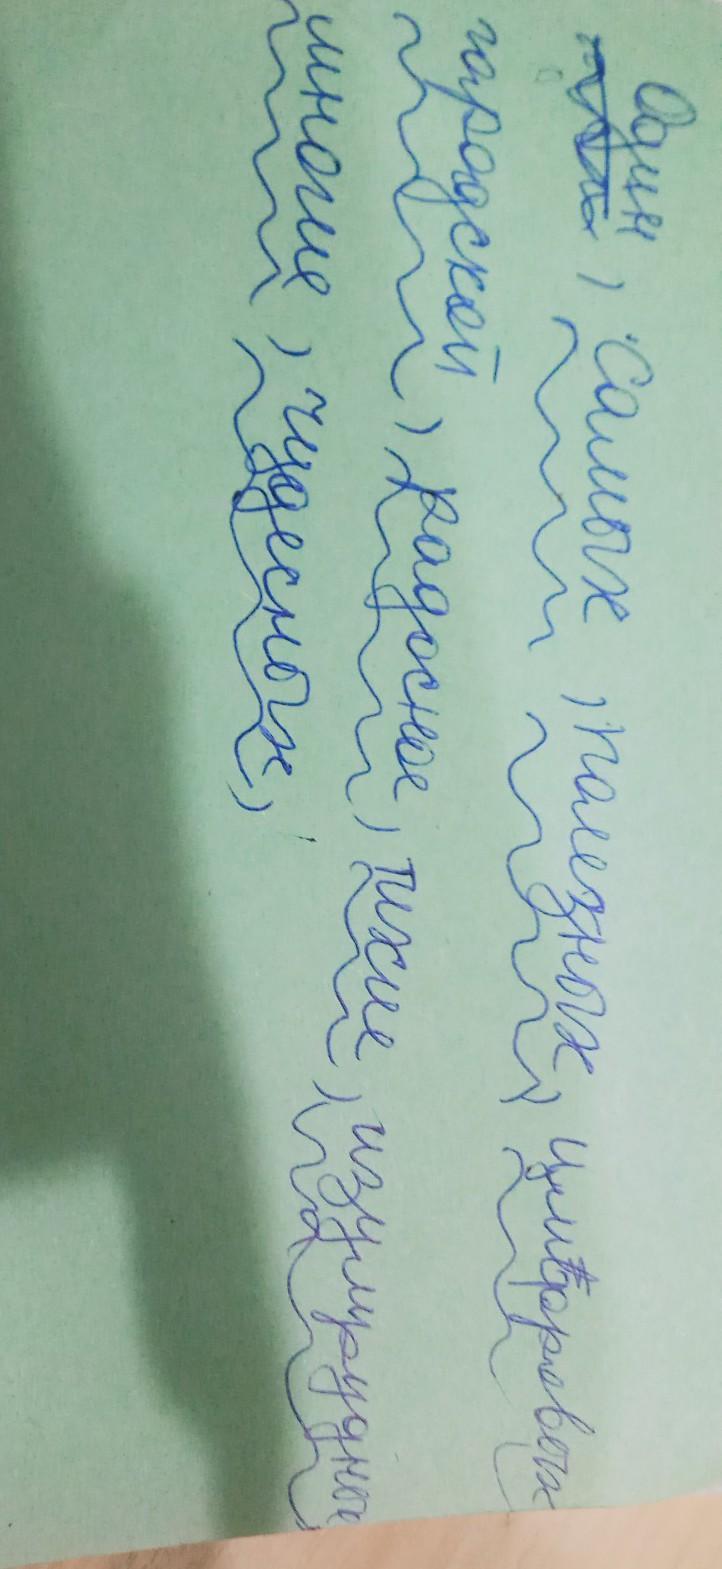 Один, самых, полезных, цитфровых
городской, радосное, тихие, изумрудные
многие, чудесных,